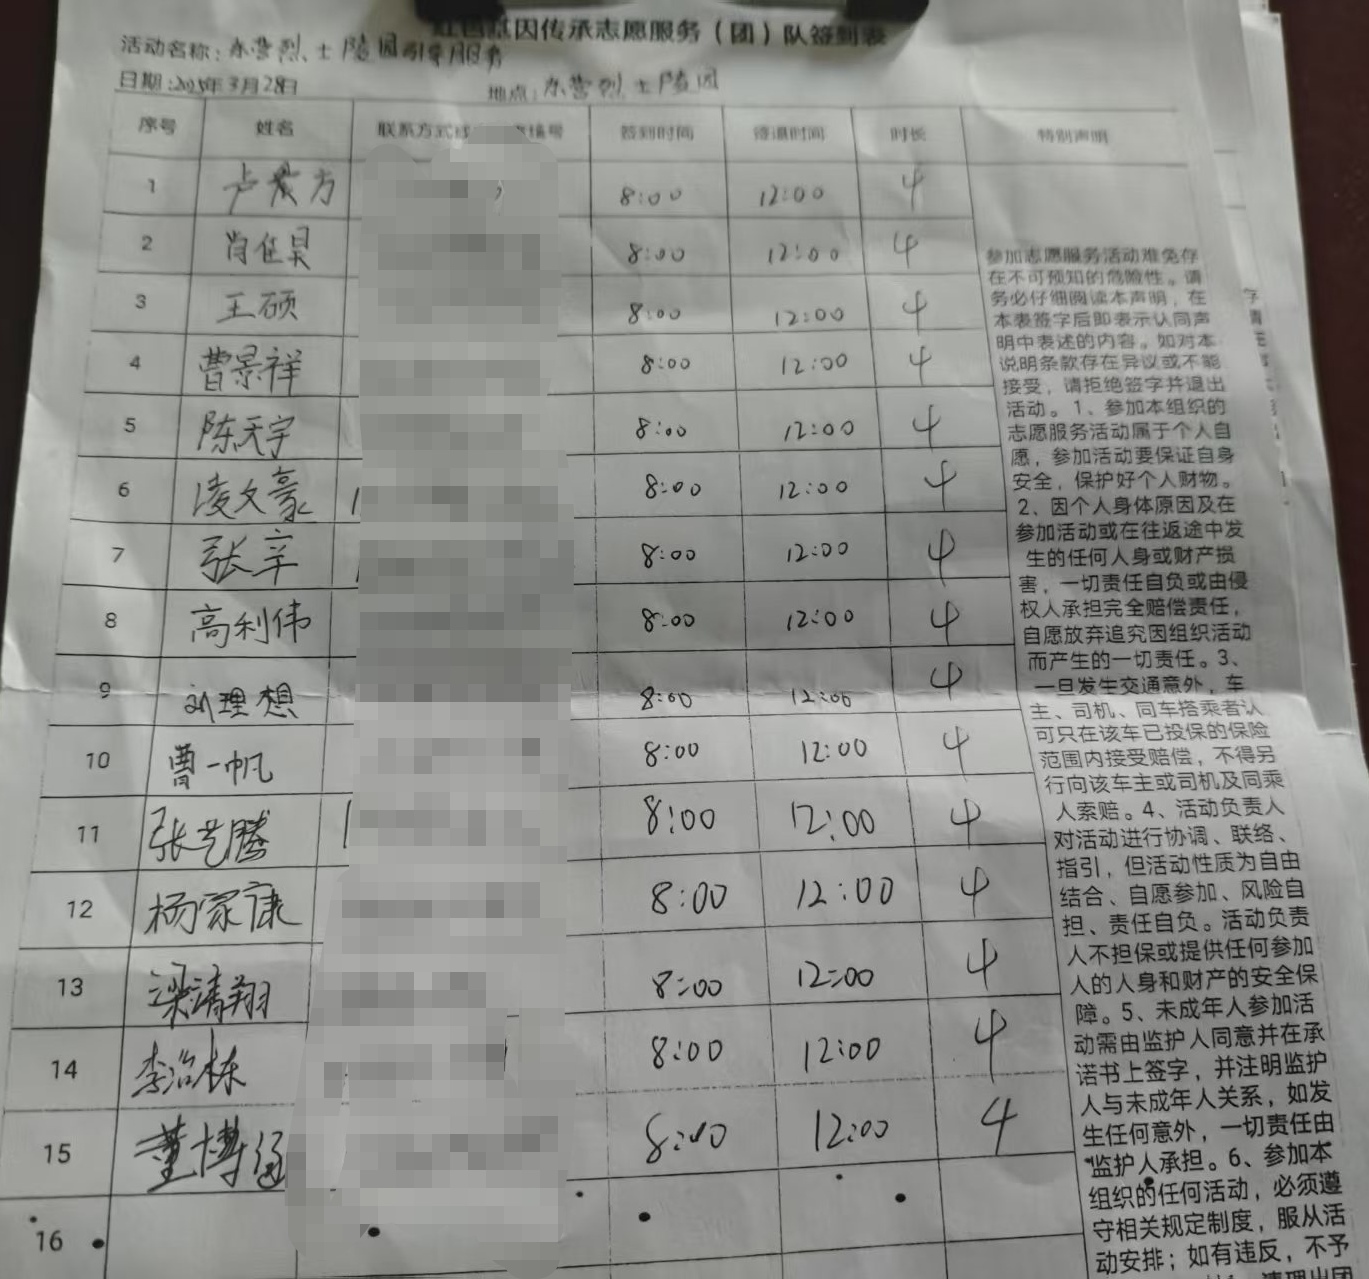 红色基因传承志愿服务（团）队签到表
活动名称：东营烈士陵园引导服务
日期：2025年3月28日 地点：东营烈士陵园
序号 姓名 联系方式 编号 签到时间 签退时间 时长 特别声明
1 卢 方 8:00 12:00 4
2 肖佳昊 8:00 12:00 4
3 王硕 8:00 12:00 4
4 曹景祥 8:00 12:00 4
5 陈天宇 8:00 12:00 4
6 凌文豪 8:00 12:00 4
7 张辛 8:00 12:00 4
8 高利伟 8:00 12:00 4
9 刘理想 8:00 12:00 4
10 曹一帆 8:00 12:00 4
11 张艺腾 8:00 12:00 4
12 杨家康 8:00 12:00 4
13 梁清翔 8:00 12:00 4
14 李治栋 8:00 12:00 4
15 董博 8:00 12:00 4
16
参加志愿服务活动难免存
在不可预知的危险性。请
务必仔细阅读本声明，在
本表签字后即表示认同声
明中表述的内容。如对本
说明条款存在异议或不能
接受，请拒绝签字并退出
活动。1、参加本组织的
志愿服务活动属于个人自
愿，参加活动要保证自身
安全，保护好个人财物。
2、因个人身体原因及在
参加活动或在往返途中发
生的任何人身或财产损
害，一切责任自负或由侵
权人承担完全赔偿责任，
自愿放弃追究因组织活动
而产生的一切责任。3、
一旦发生交通意外，车
主、司机、同车搭乘者认
可只在该车已投保的保险
范围内接受赔偿，不得另
行向该车主或司机及同乘
人索赔。4、活动负责人
对活动进行协调、联络、
指引，但活动性质为自由
结合、自愿参加、风险自
担、责任自负。活动负责
人不担保或提供任何参加
人的人身和财产的安全保
障。5、未成年人参加活
动需由监护人同意并在承
诺书上签字，并注明监护
人与未成年人关系，如发
生任何意外，一切责任由
监护人承担。6、参加本
组织的任何活动，必须遵
守相关规定制度，服从活
动安排；如有违反，不予